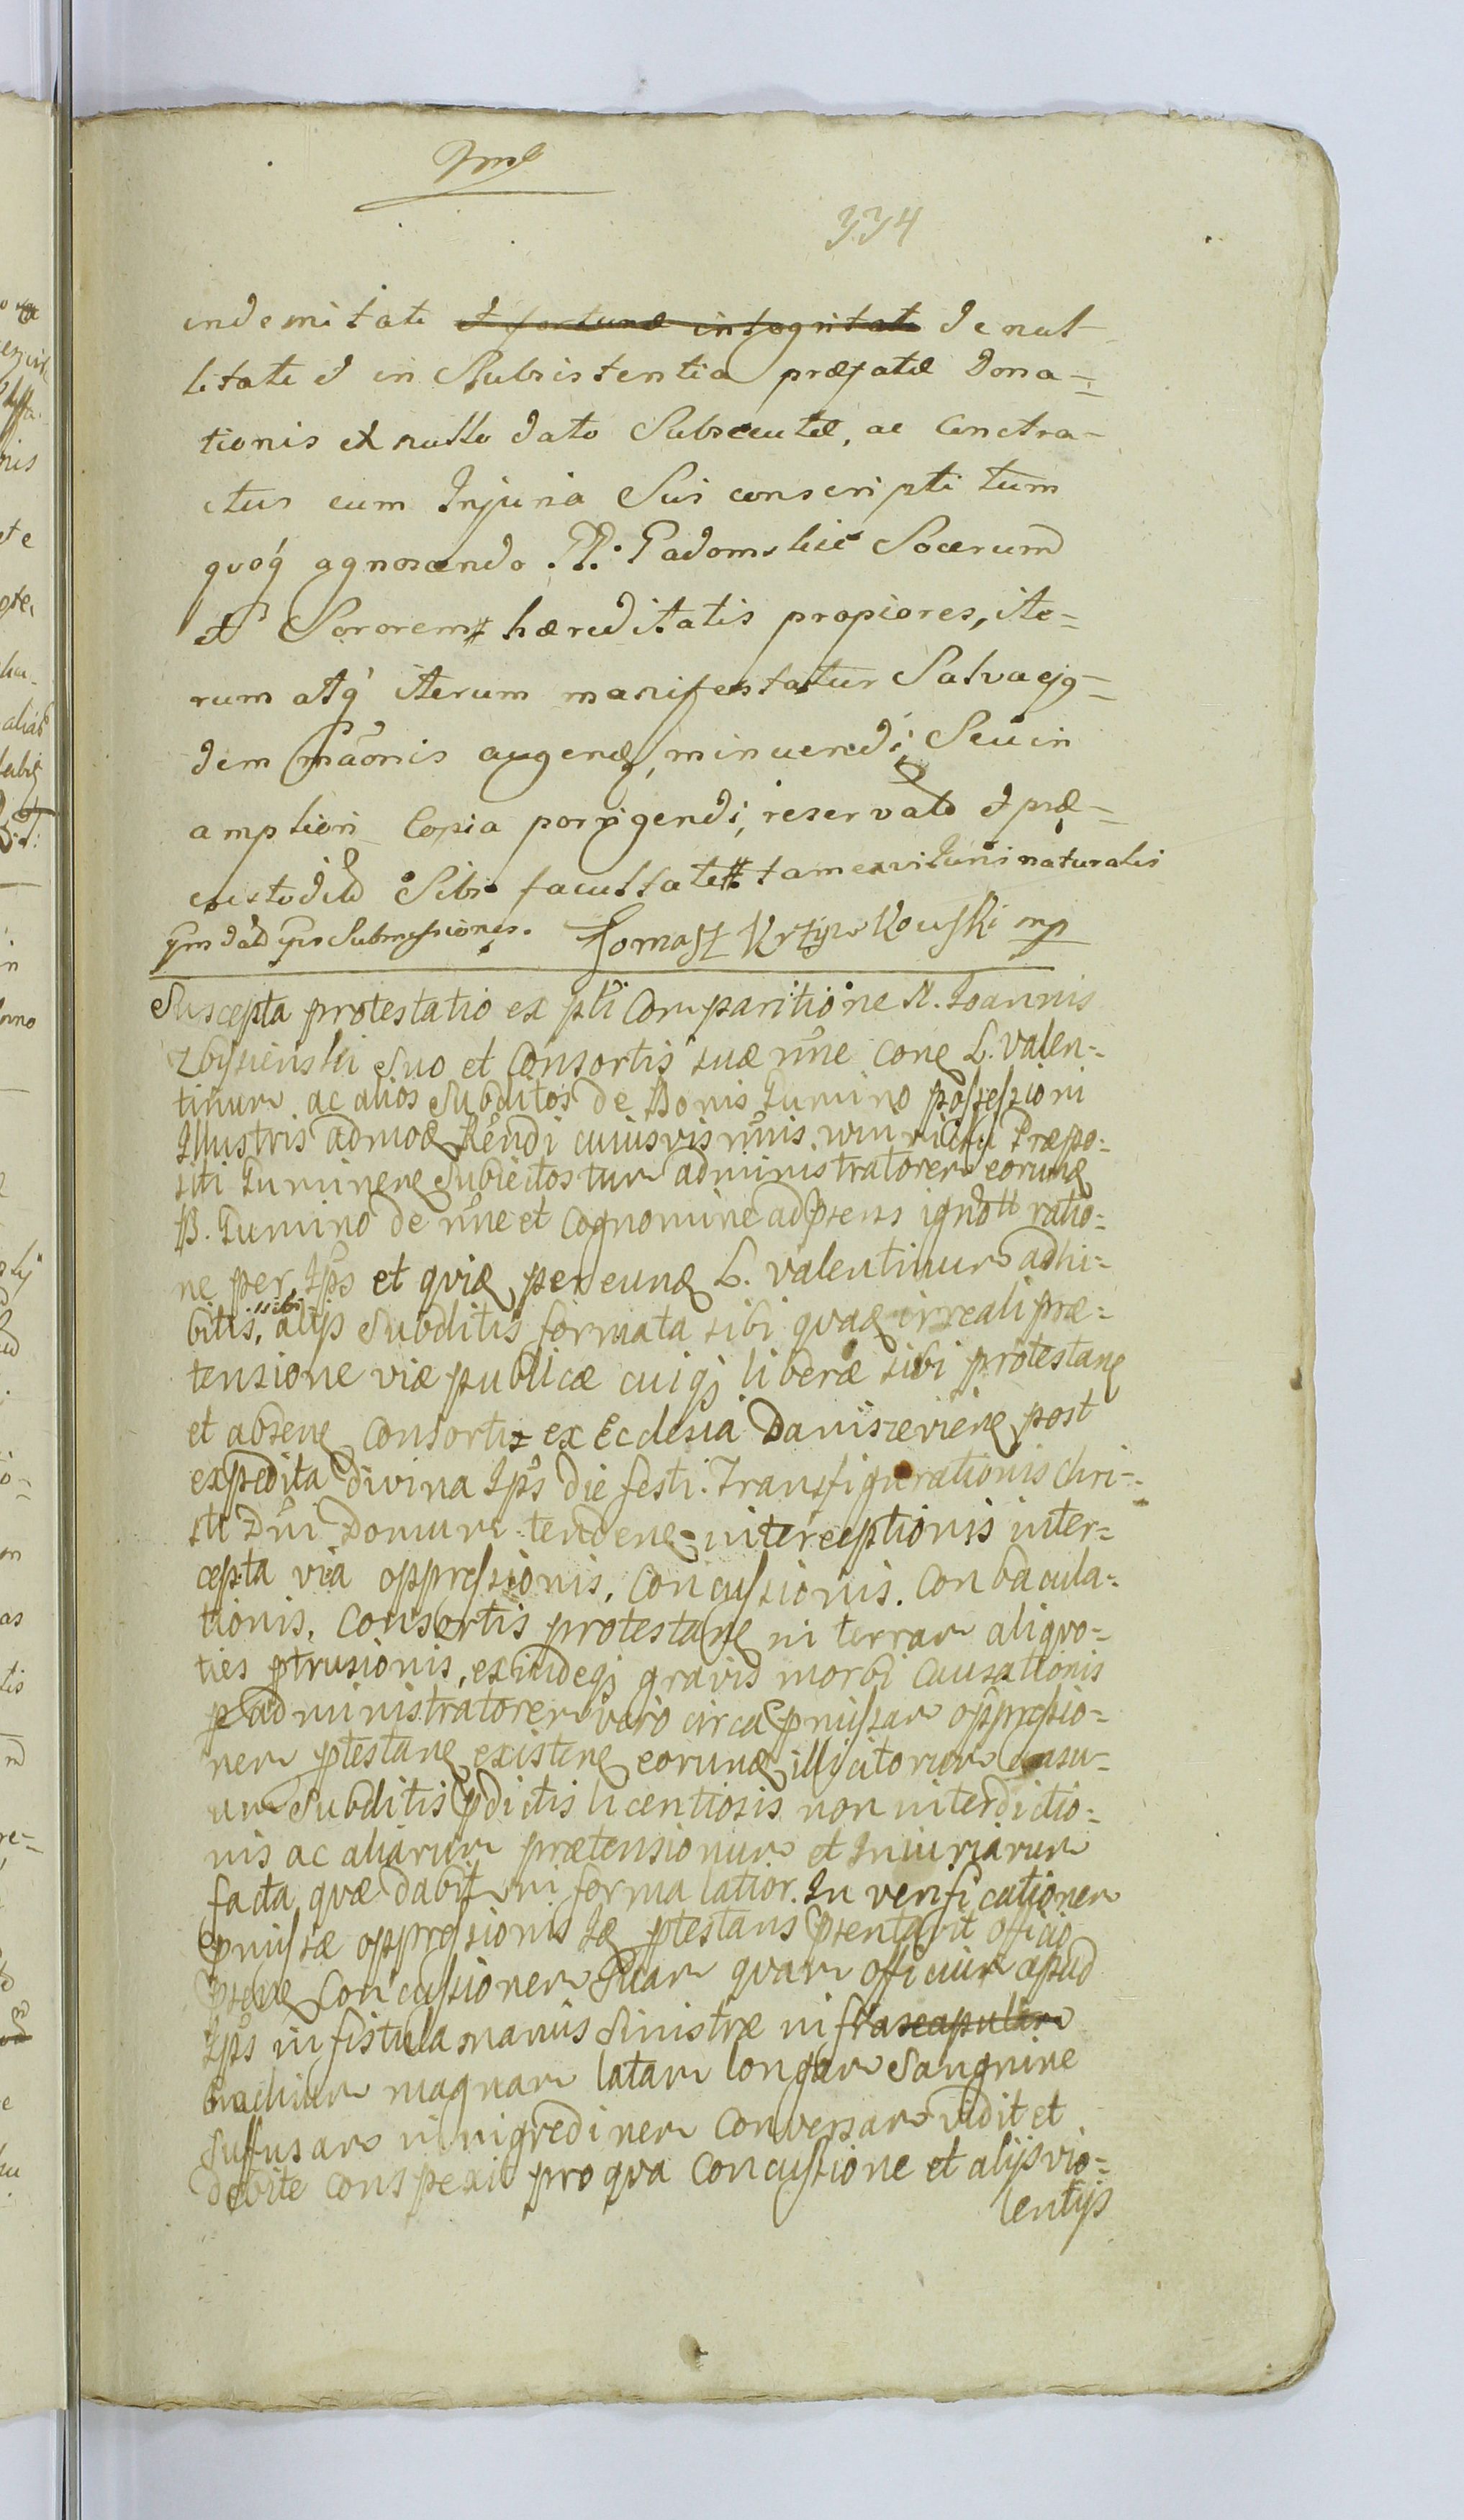 334
indemitati et fortunæ integritati de nul-
litate et in Subsistentia præfatæ Dona=
tionis ex nullo dato Subsecutæ, ac Contra-
ctus cum Injuria Sui conscripti tum
quoq́ agnoscendo Padomskie Socerum
et Sororem hæreditatis propiores, ite=
rum atq́ iterum manifestatur Salva ejq=
dem mãonis augendę, minuendi, Seu in
ampliori Copia porrigendi, reservata et præ=
custodita Sibi facultate tam ex vi Juris naturalis
Submissiones. Tomasz Krzywkouski mp
Suscepta protestatio ex pti Comparitione N. Joannis
Zbysienski suo et Consortis suæ nñe conę L. Valen=
tinum ac alios Subditos de Bonis Dumino possessioni
Illustris admoę Rẽndi cuiusvis nñis Præpo=
siti Duminenę Subiectos tum administratorem eorundę
B. Dumino de nñe et Cognomine ad psens ignott ratio=
ne per Ips et quię per eunę L. Valentinum adhi=
bitis sibi alijs Subditis formata sibi quaę irreali præ=
tensione viæ publicæ cuiqj liberæ sibi protestanę
et absenę Consortis ex Ecclesia Daniszevienę post
expedita divina Ips die festi Transfigurationis Chri=
sti Dñi Domum tendenę interceptionis inter=
cepta via oppressionis, concussionis, conbacula=
tionis, Consortis protestanę in terram aliquo=
ties ptrusionis, exindeqj gravis morbi causationis
p administratorem vero circa pmissam oppressio=
nem ptestanę existenę eorundę illicitorum ausu=
um Subditis pdictis licentiosis non interdictio=
nis ac aliarum prætensionum et Iniuriarum
facta quæ dabit in forma latior. In verificationem
pmissæ oppressionisIę ptestans psentavit officio
psenę Concussionem Suam quam officium apud
Ips in fistula manus Sinistræ infra scapulam
brachium magnam latam longam Sanguine
Suffusam in nigredinem Conversam vidit et
debite conspexit pro qva Concussione et alijs vio=
lentijs